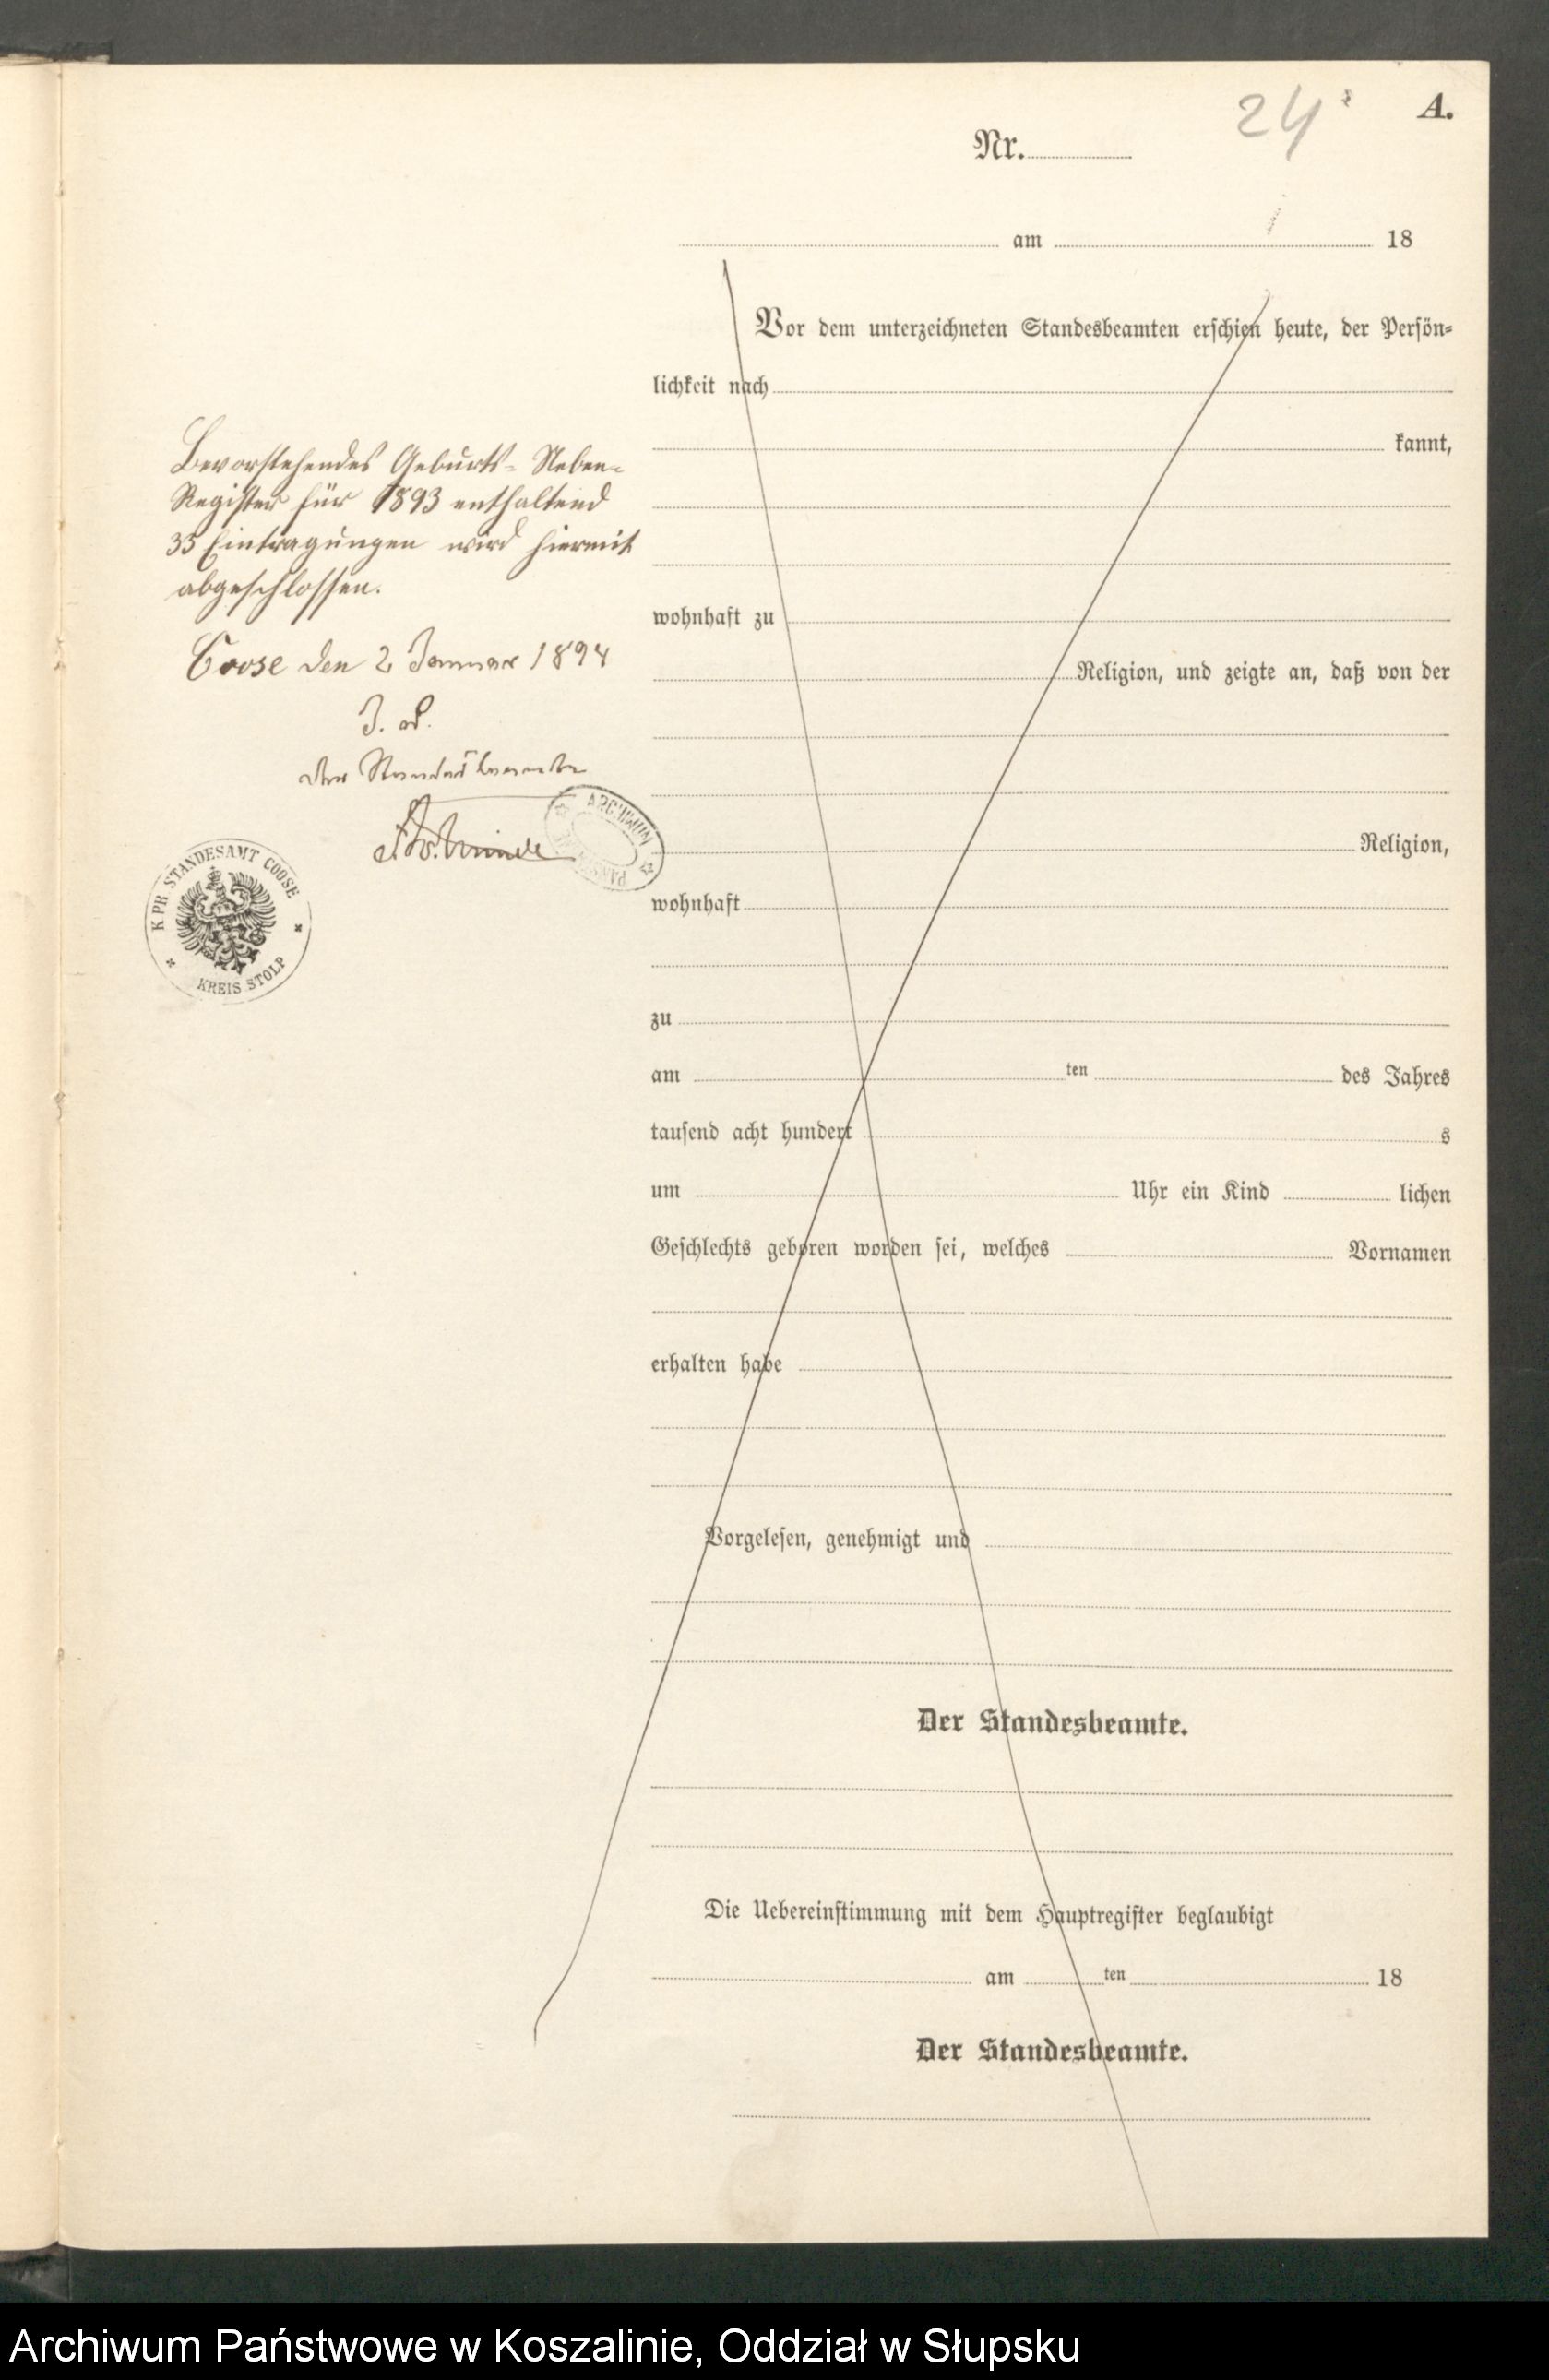 24
A.
Nr.
am 18
Vor dem unterzeichneten Standesbeamten erschien heute, der Persön-
lichkeit nach
kannt,
wohnhaft zu
Religion, und zeigte an, daß von der
Religion,
wohnhaft
zu
am ten des Jahres
tausend acht hundert s
um Uhr ein Kind lichen
Geschlechts geboren worden sei, welches Vornamen
erhalten habe
Vorgelesen, genehmigt und
Der Standesbeamte.
Die Uebereinstimmung mit dem Hauptregister beglaubigt
am ten 18
Der Standesbeamte.
Bevorstehendes Geburts-Neben-
Register für 1893 enthaltend
35 Eintragungen wird hiermit
abgeschlossen.
Coose den 2 Januar 1894
Der Standesbeamte
ARCHIWUM
K. PR. STANDESAMT COOSE
KREIS STOLP
Archiwum Państwowe w Koszalinie, Oddział w Słupsku